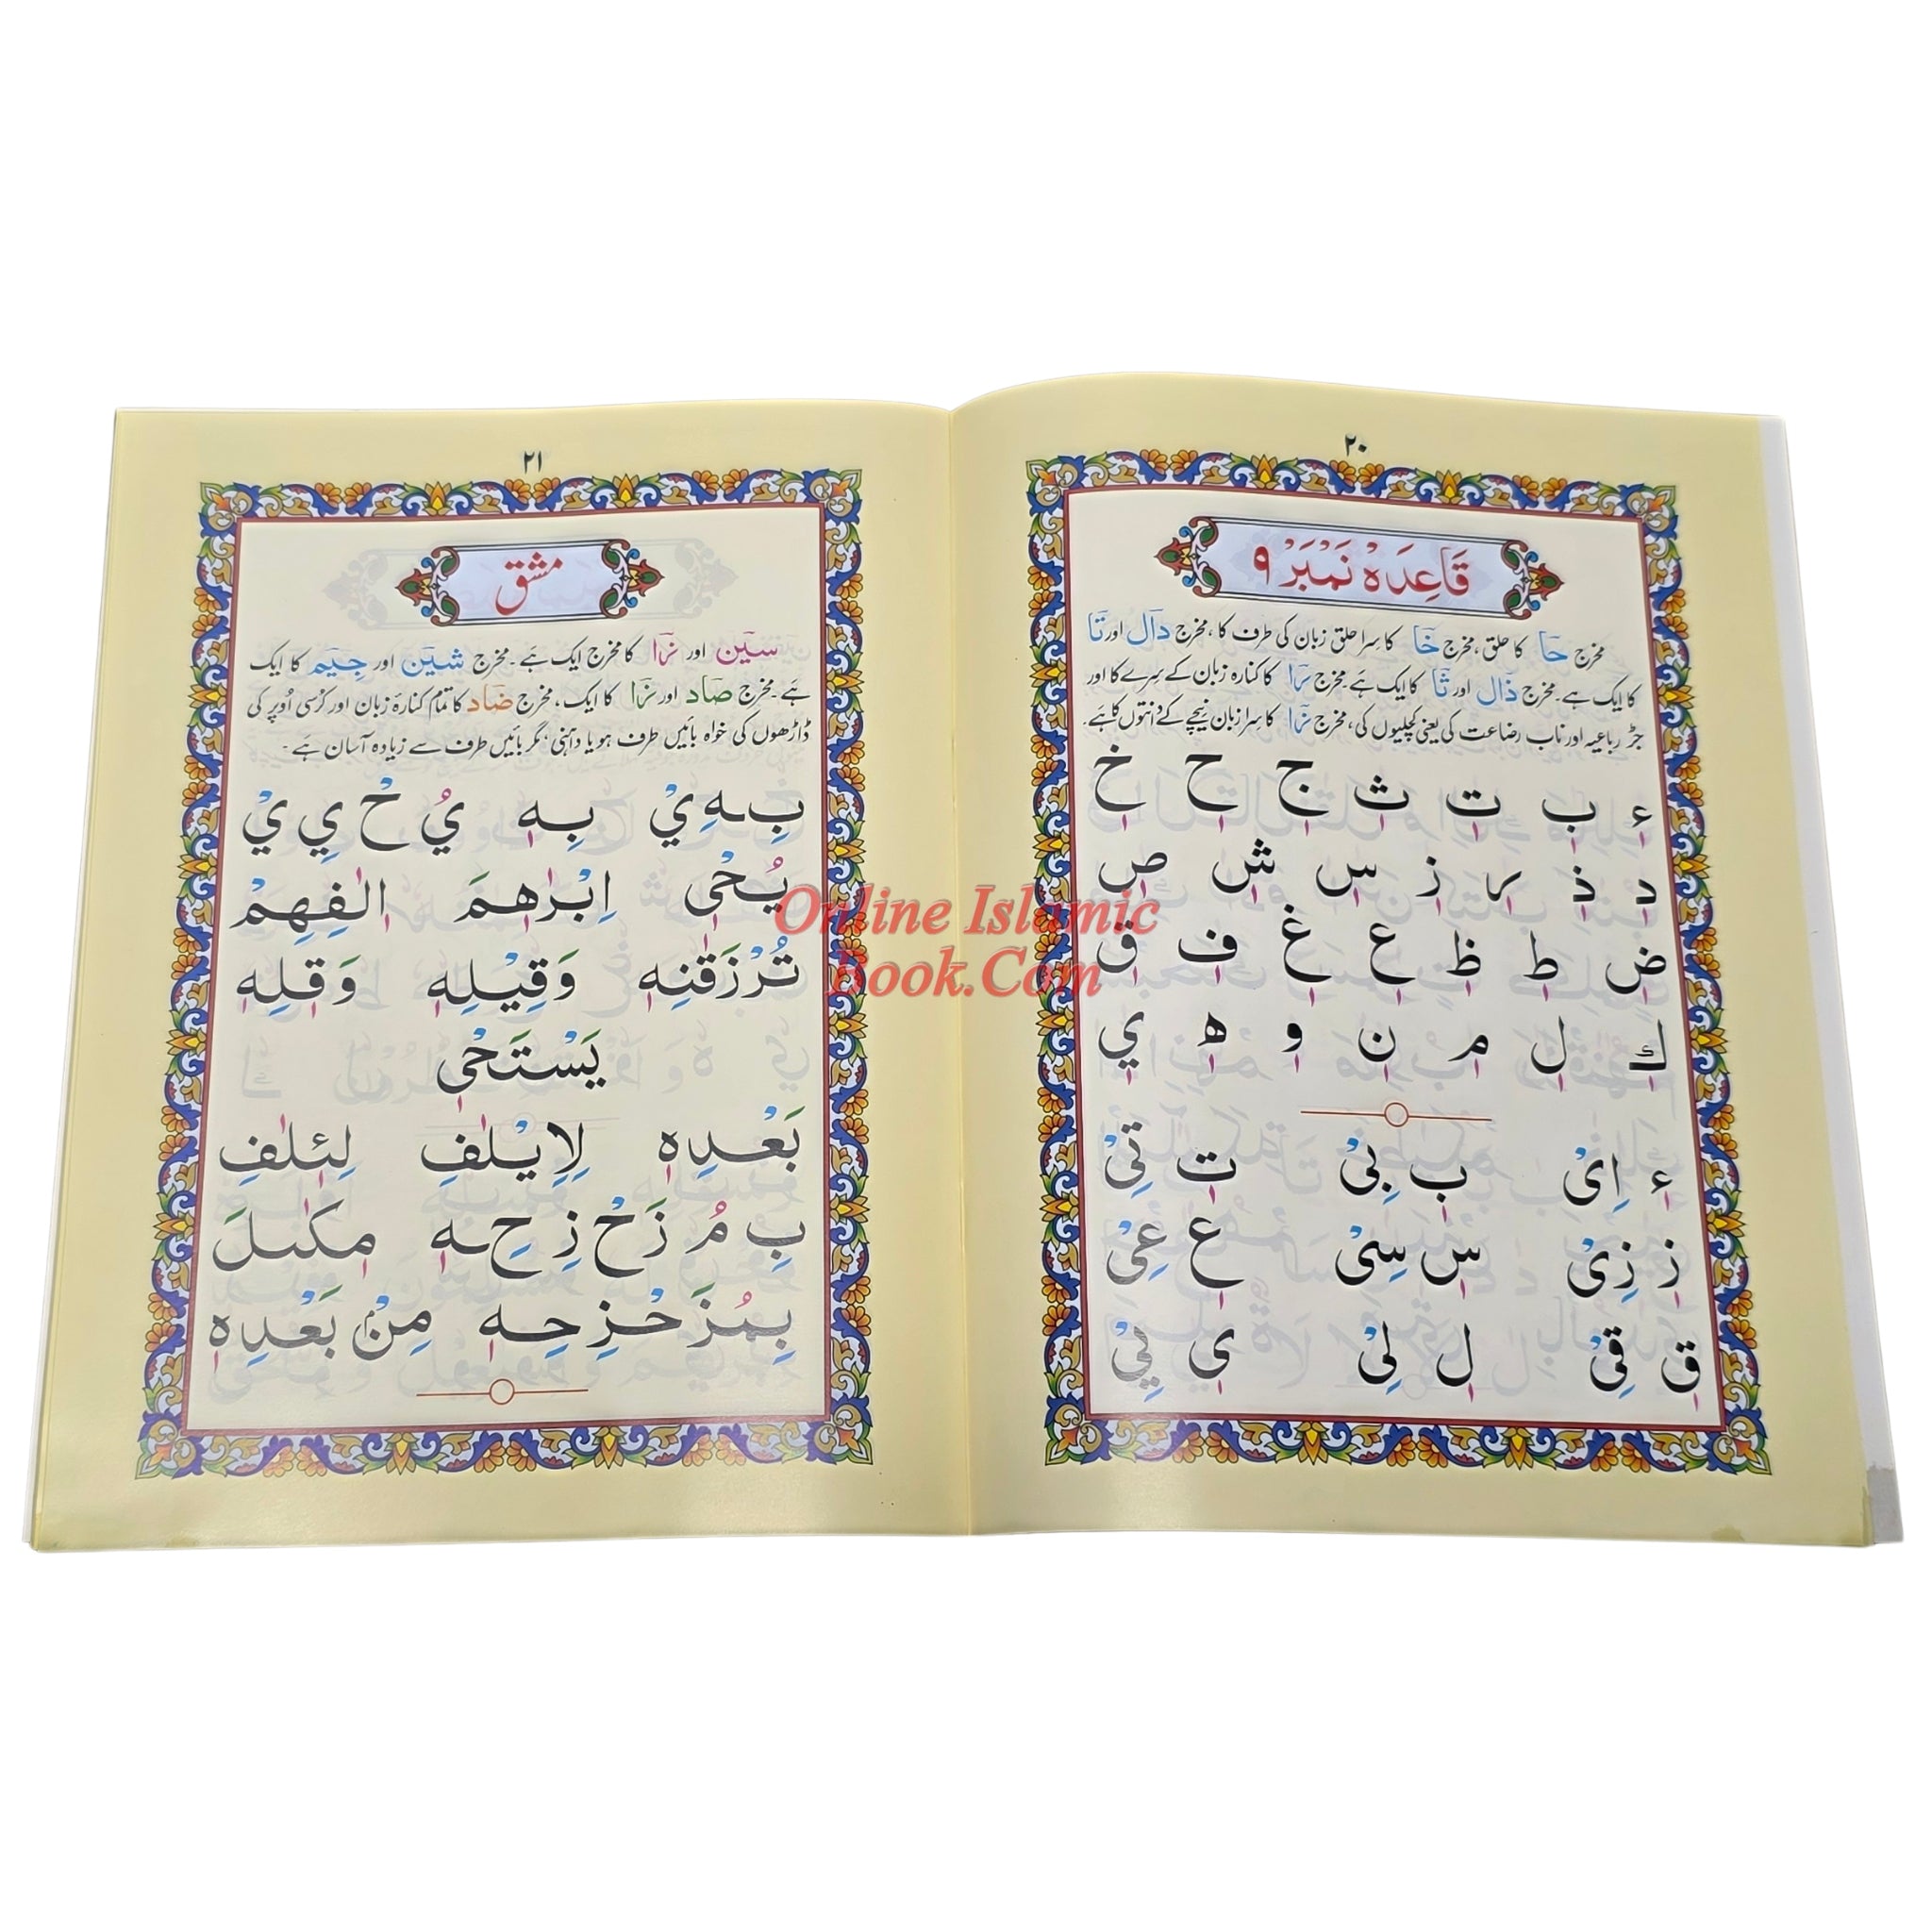 ٢٠
قَاعِدَہْ نَمْبَرْ ٩
مخرج حَا کا حلق، مخرج خَا کا سِرا حلق زبان کی طرف کا، مخرج دَال اور تَا
کا ایک ہے۔ مخرج ذَال اور ثَا کا ایک ہے۔ مخرج رَا کا کنارہ زبان کے سِرے کا اور
جڑ رباعیہ اور ناب رضاعت کی یعنی کچلیوں کی، مخرج زَا کا سِرا زبان نیچے کے دانتوں کا ہے۔
ءٖ بٖ تٖ ثٖ جٖ حٖ خٖ
دٖ ذٖ رٖ زٖ سٖ شٖ صٖ
ضٖ طٖ ظٖ عٖ غٖ فٖ قٖ
كٖ لٖ مٖ نٖ وٖ هٖ يٖ
ءٖ اِىْ بٖ بِىْ تٖ تِىْ
زٖ زِىْ سٖ سِىْ عٖ عِىْ
قٖ قِىْ لٖ لِىْ ىٖ يِىْ
٢١
مشق
سیَن اور زَا کا مخرج ایک ہَے۔ مخرج شیَن اور جِیَم کا ایک
ہَے۔ مخرج صَاد اور زَا کا ایک، مخرج ضَاد کا تمام کنارۂ زبان اور کُرسی اُوپر کی
ڈاڑھوں کی خواہ بائیں طرف ہو یا داہنی، مگر بائیں طرف سے زیادہ آسان ہَے۔
بِـهِيْ بِـهٖ يُ حْ يِ يْ
يُحْيٖ اِبْرٰهٖمَ اٖلٰفِهِمْ
تُرْزَقٰنِهٖ وَقِيْلِهٖ وَقٖلِهٖ
يَسْتَحْيٖ
بَعْدِهٖ لِاِيْلٰفِ لِئٖلٰفِ
بِ مُ زَ حْ زِ حِ ـهٖ مٖكٰىلَ
بِمُزَحْزِحِهٖ مِنْۢ بَعْدِهٖ
Online Islamic
Book.Com